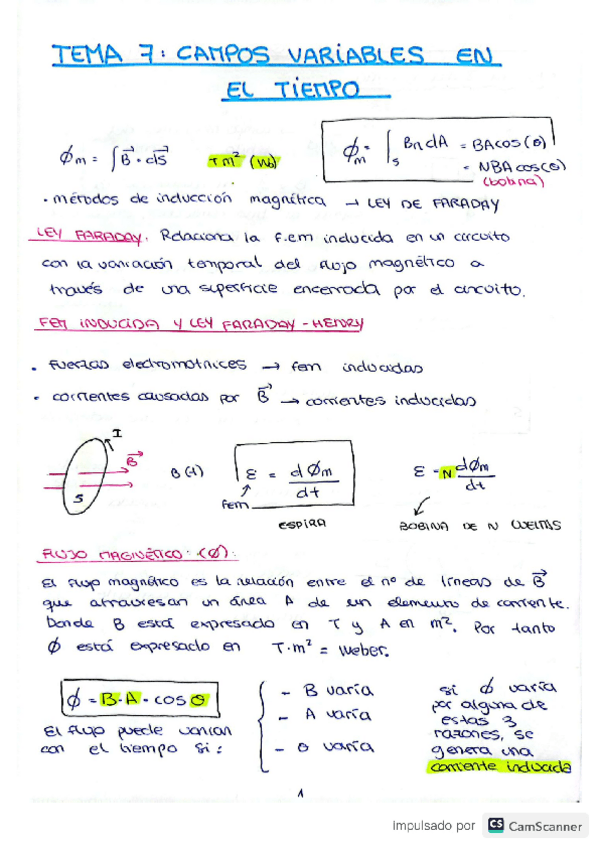 TEMA 7: CAMPOS VARIABLES EN
EL TIEMPO
Φm = ∫B⃗ · dS⃗   T m² (Wb)
Φm = ∫s Bn dA = BA cos(θ)
= NBA cos(θ)
(bobina)
· métodos de inducción magnética → LEY DE FARADAY
LEY FARADAY. Relaciona la f.em inducida en un circuito
con la variación temporal del flujo magnético a
través de una superficie encerrada por el circuito.
FEM INDUCIDA Y LEY FARADAY - HENRY
· fuerzas electromotrices → fem inducidas
· corrientes causadas por B⃗ → corrientes inducidas
I
B⃗
S
B(t)
ε = dΦm/dt
fem
ESPIRA
ε = N dΦm/dt
BOBINA DE N VUELTAS
FLUJO MAGNÉTICO: (Φ):
El flujo magnético es la relación entre el nº de líneas de B⃗
que atraviesan un área A de un elemento de corriente.
Donde B está expresado en T y A en m². Por tanto
Φ está expresado en T·m² = Weber.
Φ = B·A·cos θ
El flujo puede varian
con el tiempo si:
- B varía
- A varía
- θ varía
si Φ varía
por alguna de
estas 3
razones, se
genera una
corriente inducida
1
Impulsado por CS CamScanner